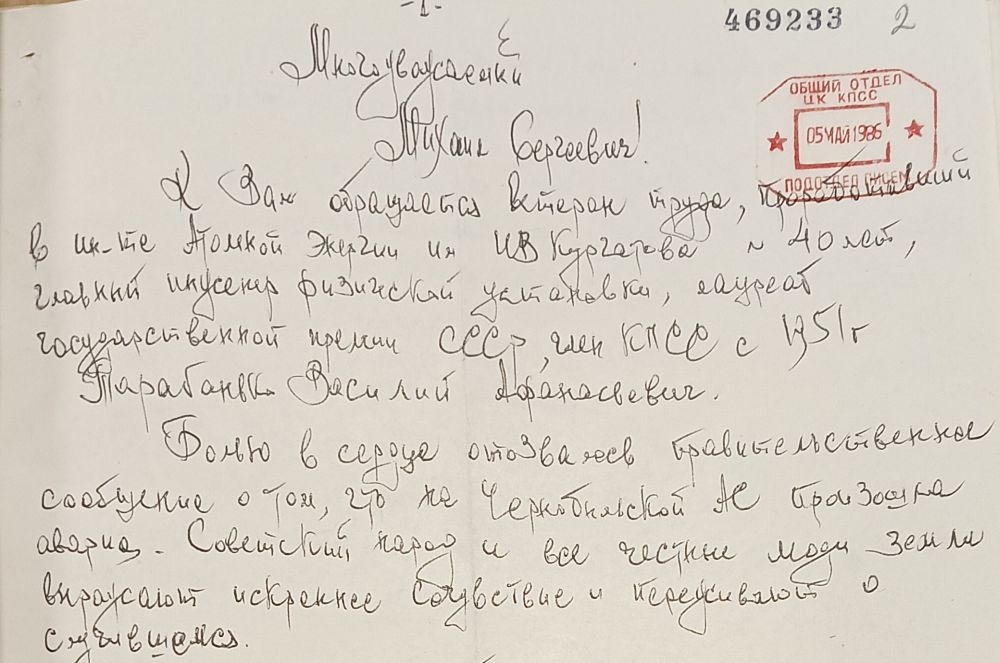 -1-
469233 2
Многоуважаемый
Михаил Сергеевич!
ОБЩИЙ ОТДЕЛ
ЦК КПСС
05 МАЙ 1986
ПОДОТДЕЛ ПИСЕМ
К Вам обращается ветеран труда, проработавший
в ин-те Атомной Энергии им ИВ Курчатова ~ 40 лет,
главный инженер физической установки, лауреат
государственной премии СССР, член КПСС с 1951г
Тарабанько Василий Афанасьевич.
Болью в сердце отозвалось правительственное
сообщение о том, что на Чернобыльской АС произошла
авария. Советский народ и все честные люди Земли
выражают искреннее сочувствие и переживают о
случившемся.